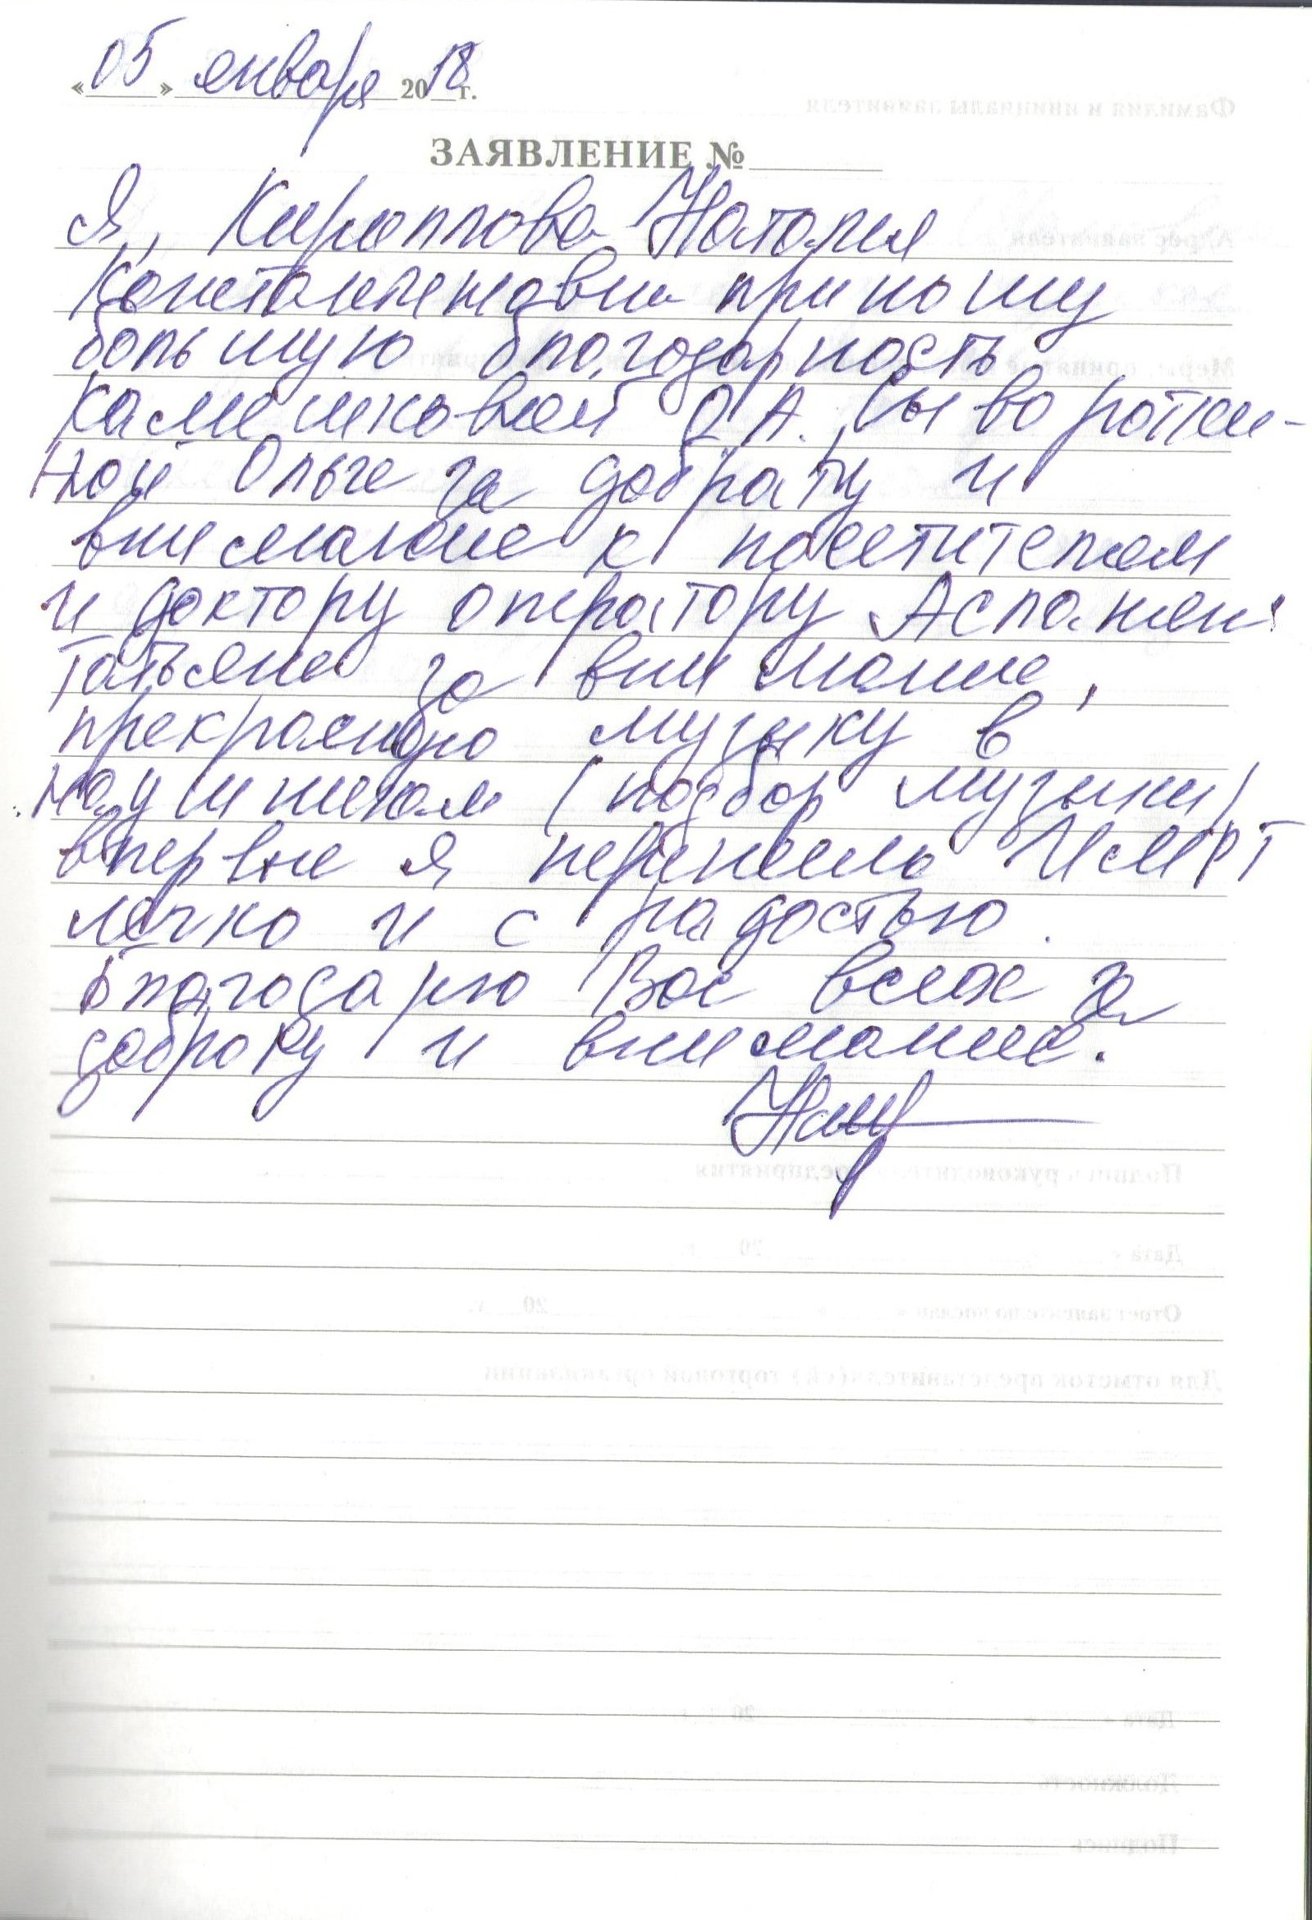 «05» января 2018 г.
ЗАЯВЛЕНИЕ №
Я, Кириллова Наталия
Константиновна приношу
большую благодарность
О.А. Сыворотки-
ной Ольге за доброту и
внимание к посетителям
и доктору оператору
Татьяне за внимание,
прекрасную музыку в
наушниках (подбор музыки)
впервые я перенесла МРТ
легко и с радостью.
Благодарю Вас всех за
доброту и внимание.